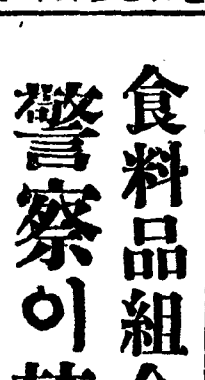 食料品組
警察이